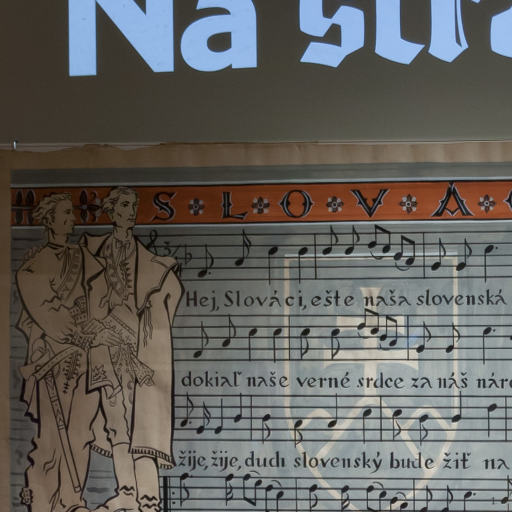 Na
SLOVÁ
Hej, Slováci, ešte naša slovenská
dokiaľ naše verné srdce za náš
žije, žije, duch slovenský bude žiť na